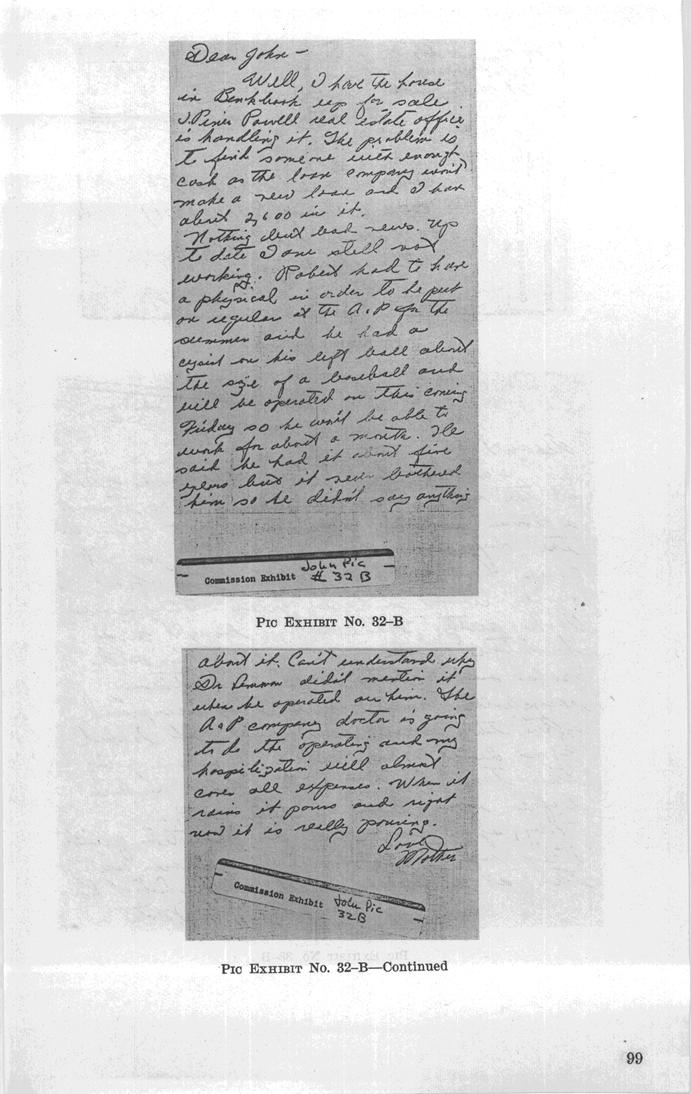 Dear John –
Well, I have the house
in Benbrook up for sale.
J. Piner Powell real estate office
is handling it. The problem is
to find someone with enough
cash as the loan company won't
make a new loan and I have
about 2,600 in it.
Nothing but bad news. Up
to date I am still not
working. Robert had to have
a physical in order to be put
on regular at the A.P for the
summer and he had a
cyst on his left ball about
the size of a baseball and
will be operated on this coming
Friday so he won't be able to
work for about a month. He
said he had it about five
years but it never bothered
him so he didn't say anything
Commission Exhibit John Pic
# 32 B
PIC EXHIBIT NO. 32–B
about it. Can't understand why
Dr didn't mention it
when he operated on him. The
A&P company doctor is going
to do the operating and my
hospilization will almost
cover all expenses. When it
rains it pours and right
now it is really pouring.
Love
Mother
Commission Exhibit John Pic
32B
PIC EXHIBIT NO. 32–B—Continued
99